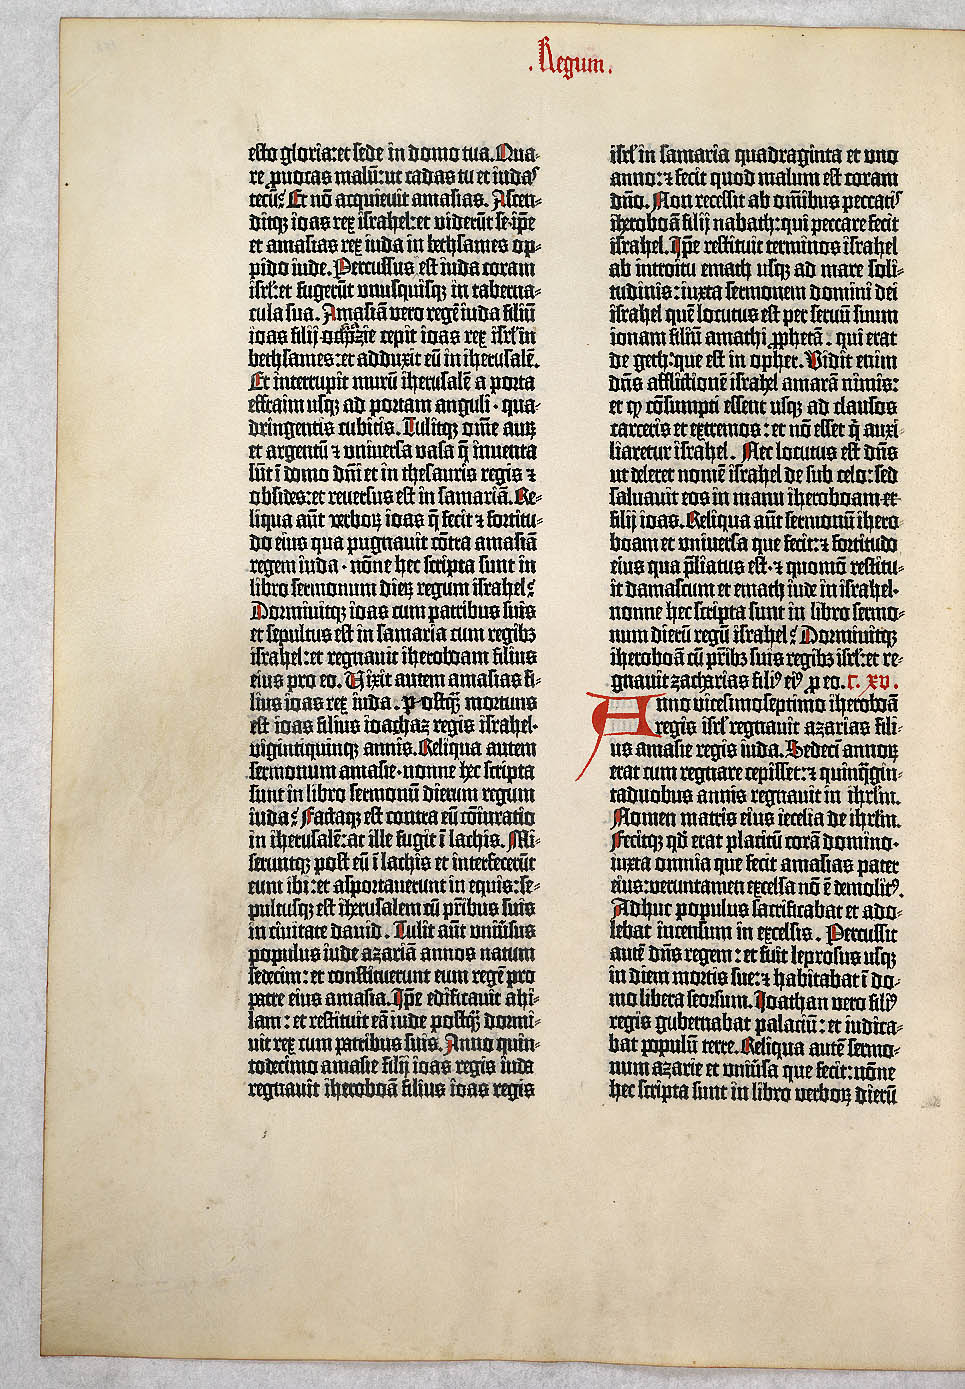 . Regum .
esto gloria: et sede in domo tua. Qua-
re ꝓuocas malū: ut cadas tu et iudas
tecū? Et nō acquieuit amasias. Ascen-
ditqꝫ ioas rex israhel: et viderūt se ip̄e
et amasias rex iuda in bethsames op-
pido iude. Percussus est iuda coram
isrl̄: et fugerūt vnusquisqꝫ in taberna-
cula sua. Amasiā vero regē iuda filiū
ioas filij ochozie cepit ioas rex isrl̄ in
bethsames: et adduxit eū in iherusalē.
Et interrupit murū iherusalē a porta
effraim usqꝫ ad portam anguli · qua-
dringentis cubitis. Tulitqꝫ om̄e auꝝ
et argentū ⁊ vniuersa vasa q̄ inuenta
sūt ī domo dn̄i et in thesauris regis ⁊
obsides: et reuersus est in samariā. Re-
liqua aūt verboꝝ ioas q̄ fecit ⁊ fortitu-
do eius qua pugnauit cōtra amasiā
regem iuda · nōne hec scripta sunt in
libro sermonum dieꝝ regum israhel?
Dormiuitqꝫ ioas cum patribus suis
et sepultus est in samaria cum regibꝫ
israhel: et regnauit iheroboam filius
eius pro eo. Vixit autem amasias fi-
lius ioas rex iuda · postqꝫ̄ mortuus
est ioas filius ioachaz regis israhel ·
vigintiquinqꝫ annis. Reliqua autem
sermonum amasie · nonne hec scripta
sunt in libro sermonū dierum regum
iuda? Factaqꝫ est contra eū cōiuratio
in iherusalē: at ille fugit ī lachis. Mi-
seruntqꝫ post eū ī lachis et interfecerūt
eum ibi: et asportauerunt in equis: se-
pultusqꝫ est iherusalem cū pr̄ibus suis
in ciuitate dauid. Tulit aūt vniūsus
populus iude azariā annos natum
sedecim: et constituerunt eum regē pro
patre eius amasia. Ip̄e edificauit ahi-
lam: et restituit eā iude postqꝫ̄ dormi-
uit rex cum patribus suis. Anno quin-
todecimo amasie filij ioas regis iuda
regnauit iheroboā filius ioas regis
isrl̄ in samaria quadraginta et vno
anno: ⁊ fecit quod malum est coram
dn̄o. Non recessit ab om̄ibus peccatis
iheroboā filij nabath: qui peccare fecit
israhel. Ip̄e restituit terminos israhel
ab introitu emath usqꝫ ad mare soli-
tudinis: iuxta sermonem domini dei
israhel quē locutus est per seruū suum
ionam filiū amathi ꝓphetā · qui erat
de geth: que est in opher. Vidit enim
dn̄s afflictionē israhel amarā nimis:
et ꝙ cōsumpti essent usqꝫ ad clausos
carceris et extremos: et nō esset q̄ auxi-
liaretur israhel. Nec locutus est dn̄s
ut deleret nomē israhel de sub celo: sed
saluauit eos in manu iheroboam et
filij ioas. Reliqua aūt sermonū ihero-
boam et vniuersa que fecit: ⁊ fortitudo
eius qua p̄liatus est · ⁊ quomō restitu-
it damascum et emath iude in israhel ·
nonne hec scripta sunt in libro sermo-
num dierū regū israhel? Dormiuitqꝫ
iheroboā cū pr̄ibꝫ suis regibꝫ isrl̄: et re-
gnauit zacharias filiꝰ eiꝰ ꝓ eo. c. xv.
Anno vicesimoseptimo iheroboā
regis isrl̄ regnauit azarias fili-
us amasie regis iuda. Sedecī annoꝝ
erat cum regnare cepisset: ⁊ quinq̄gin-
taduobus annis regnauit in ihrlm̄.
Nomen matris eius iecelia de ihrlm̄.
Fecitqꝫ qd̄ erat placitū corā domino ·
iuxta omnia que fecit amasias pater
eius: veruntamen excelsa nō ē demolitꝰ.
Adhuc populus sacrificabat et ado-
lebat incensum in excelsis. Percussit
autē dn̄s regem: et fuit leprosus usqꝫ
in diem mortis sue: ⁊ habitabat ī do-
mo libera seorsum. Joathan vero filiꝰ
regis gubernabat palaciū: et iudica-
bat populū terre. Reliqua autē sermo-
num azarie et vniūsa que fecit: nōne
hec scripta sunt in libro verboꝝ dierū